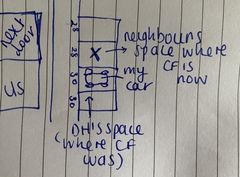 next
door
us
25
25
50
50
X
neighbours
space where
CF is
now
my
car
DH's space
(where CF
was)